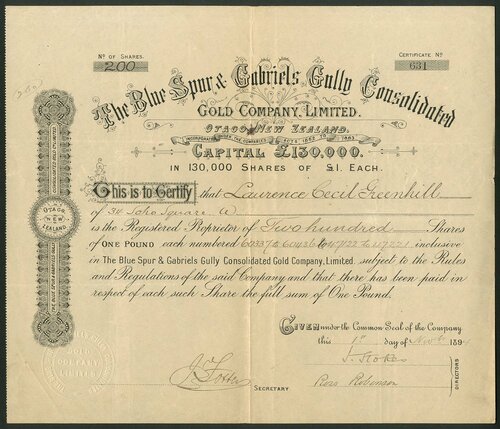 No OF SHARES.
200
CERTIFICATE No
631
The Blue Spur & Gabriels Gully Consolidated
GOLD COMPANY, LIMITED.
OTAGO, NEW ZEALAND.
INCORPORATED UNDER THE COMPANIES ACTS 1862 TO 1883
CAPITAL £130,000.
IN 130,000 SHARES OF £1. EACH.
This is to Certify that Laurence Cecil Greenhill
of 34 Soho Square W
is the Registered Proprietor of Two hundred Shares
of ONE POUND each numbered inclusive
in The Blue Spur & Gabriels Gully Consolidated Gold Company, Limited, subject to the Rules
and Regulations of the said Company and that there has been paid in
respect of each such Share the full sum of One Pound.
GIVEN under the Common Seal of the Company
this 1st day of Novr 1894
J. Stokes
Ross Robinson
DIRECTORS
SECRETARY
OTAGO
NEW
ZEALAND
THE BLUE SPUR & GABRIELS GULLY
CONSOLIDATED GOLD CO LIMITED
GOLD
COMPANY
LIMITED